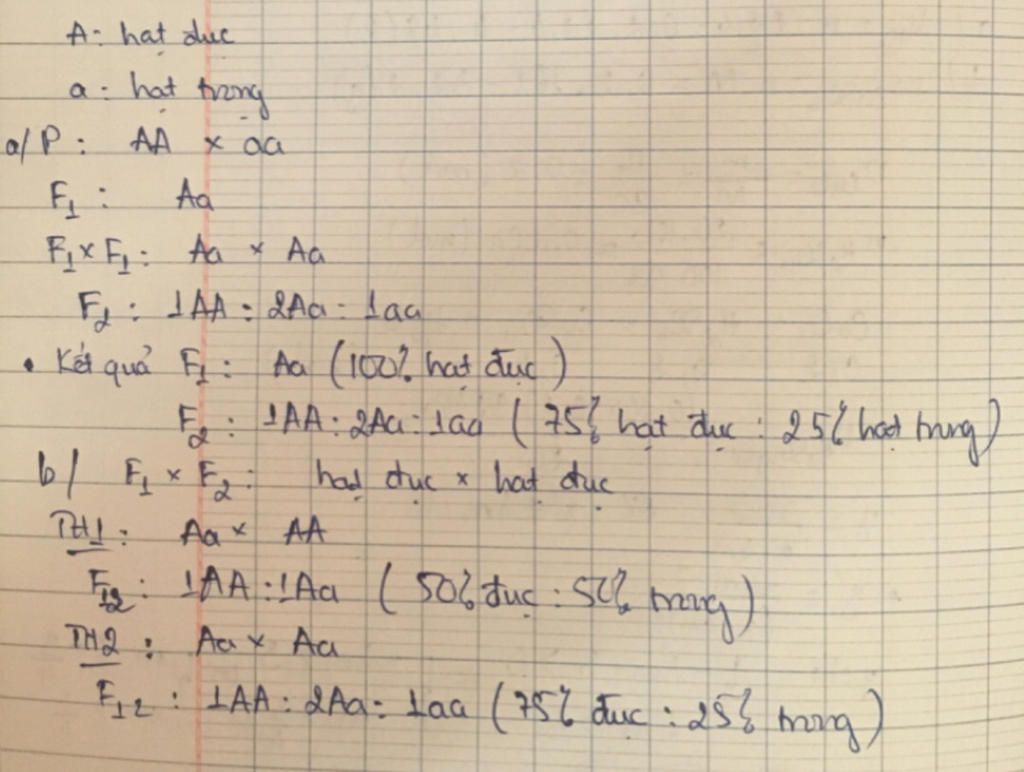 A: hạt đục
a: hạt trong
a/ P: AA × aa
F1: Aa
F1 × F1: Aa × Aa
F2: 1AA : 2Aa : 1aa
• Kết quả F1: Aa (100% hạt đục)
F2: 1AA : 2Aa : 1aa (75% hạt đục : 25% hạt trong)
b/ F1 × F2: hạt đục × hạt đục
TH1: Aa × AA
F12: 1AA : 1Aa (50% đục : 50% trong)
TH2: Aa × Aa
F12: 1AA : 2Aa : 1aa (75% đục : 25% trong)